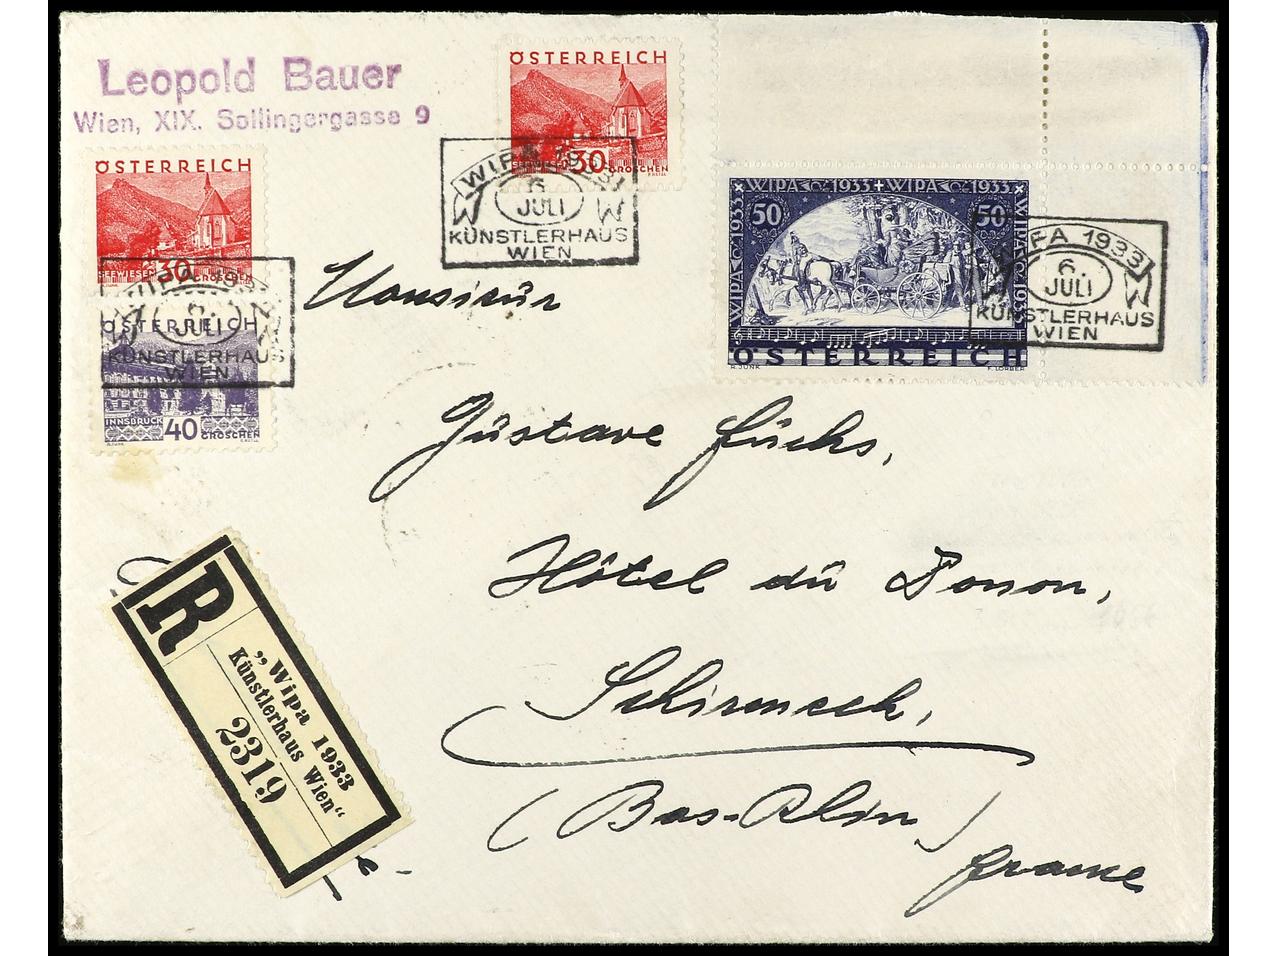 Leopold Bauer
Wien, XIX. Sollingergasse 9
ÖSTERREICH
30
SEEWIESEN GROSCHEN
ÖSTERREICH
30
SEEWIESEN GROSCHEN
ÖSTERREICH
INNSBRUCK 40 GROSCHEN
WIPA 1933
6.
JULI
KÜNSTLERHAUS
WIEN
WIPA 1933
6.
JULI
KÜNSTLERHAUS
WIEN
WIPA 1933 + WIPA 1933
WIPA 1933
WIPA 1933
50 50
ÖSTERREICH
R. JUNK F. LORBER
WIPA 1933
6.
JULI
KÜNSTLERHAUS
WIEN
Monsieur
Gustave Fuchs,
Hôtel du Donon,
Schirmeck,
(Bas-Rhin)
France
R
„Wipa 1933
Künstlerhaus Wien“
2319